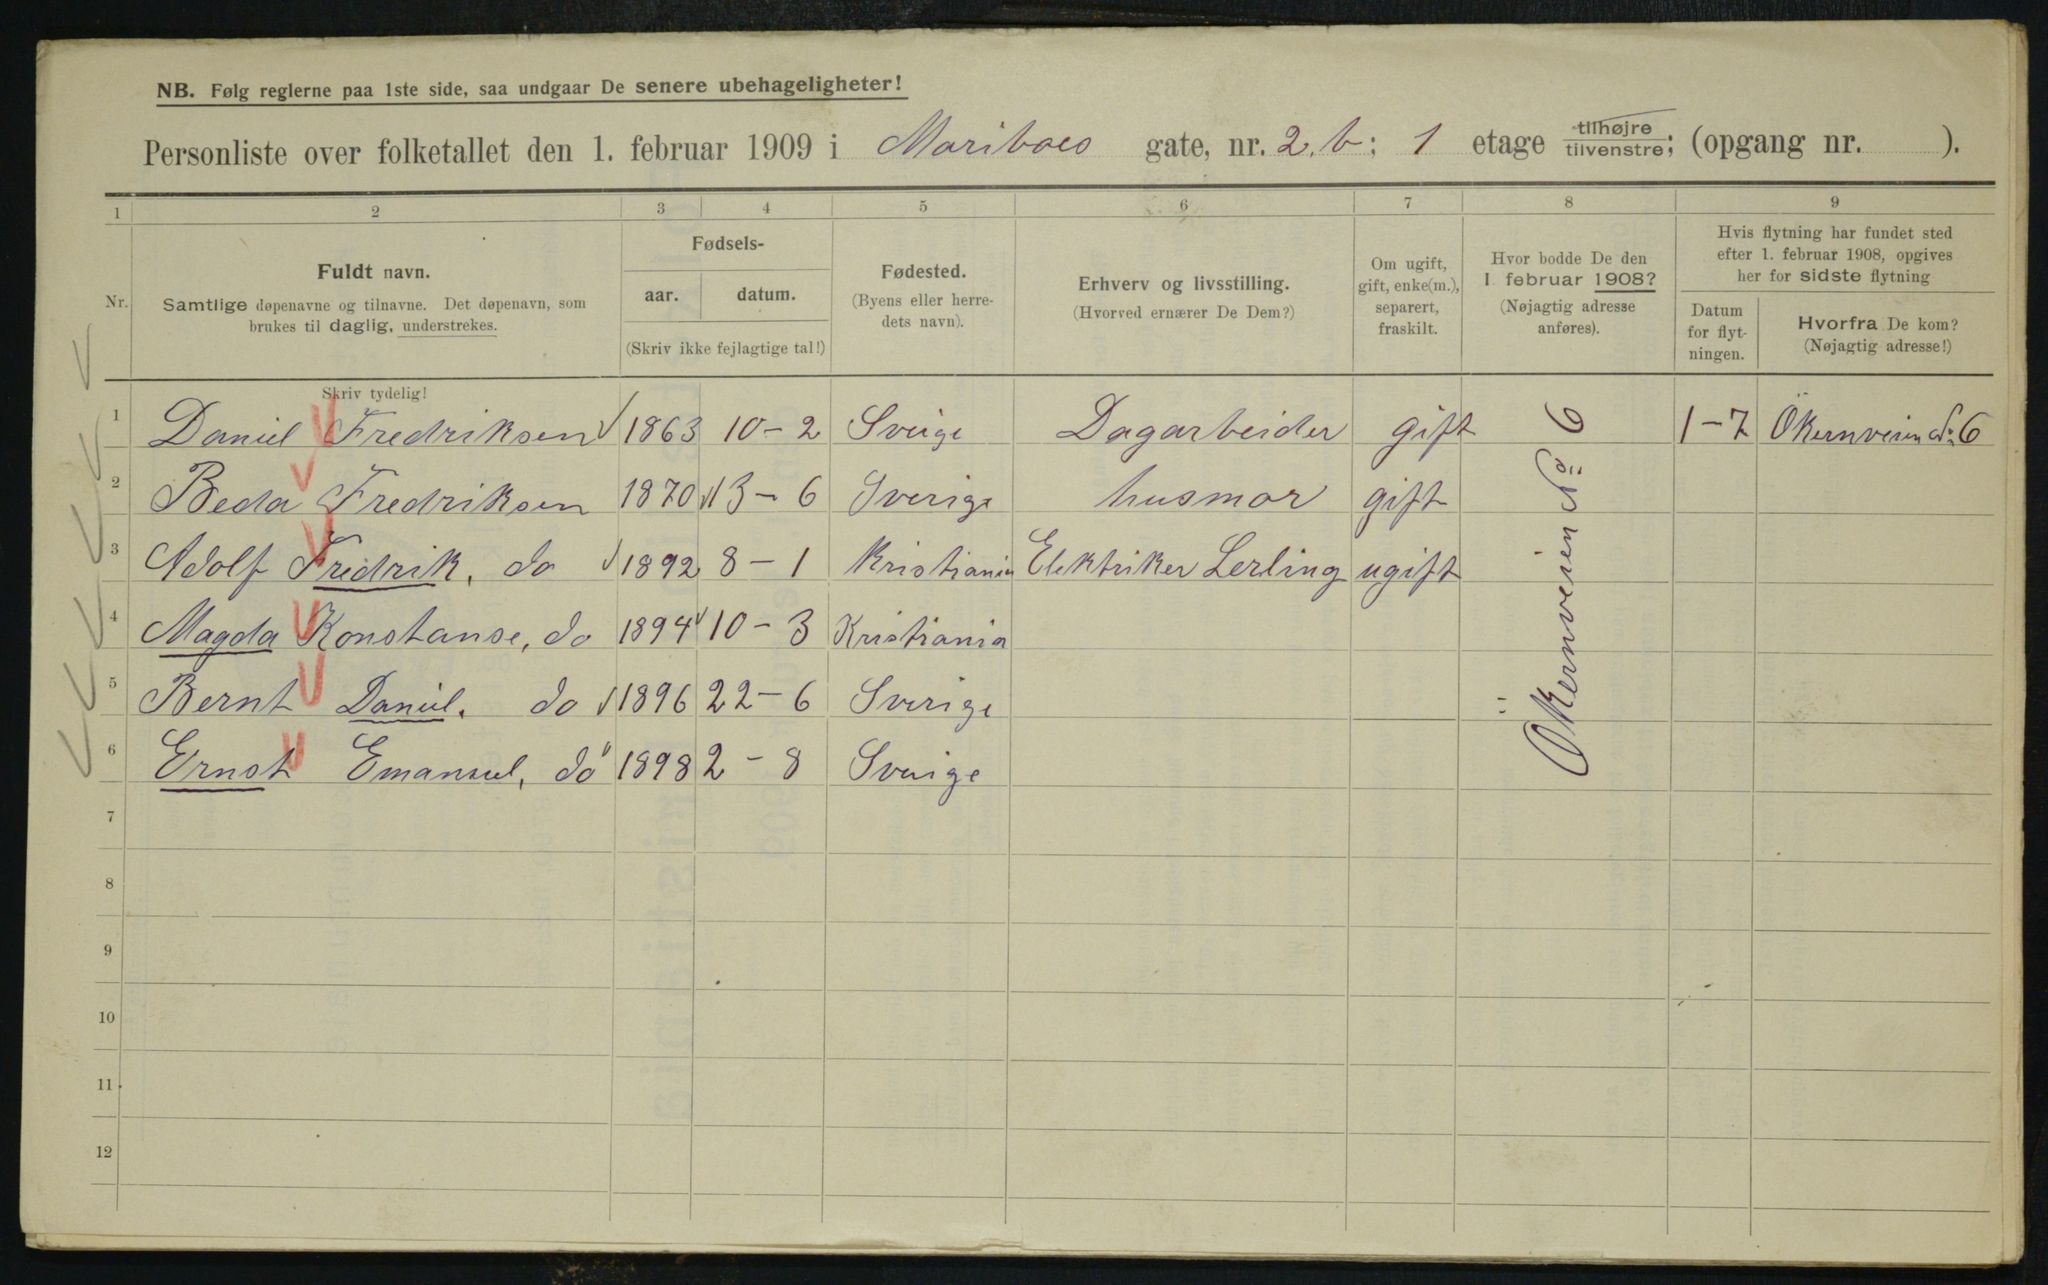 NB. Følg reglerne paa 1ste side, saa undgaar De senere ubehageligheter!
Personliste over folketallet den 1. februar 1909 i Mariboes gate, nr. 2.b; 1 etage tilhøjre tilvenstre; (opgang nr. ).
1 2 3 4 5 6 7 8 9
Nr.
Fuldt navn.
Samtlige døpenavne og tilnavne. Det døpenavn, som
brukes til daglig, understrekes.
Skriv tydelig!
Fødsels-
aar. datum.
(Skriv ikke fejlagtige tal!)
Fødested.
(Byens eller herre-
dets navn).
Erhverv og livsstilling.
(Hvorved ernærer De Dem?)
Om ugift,
gift, enke(m.),
separert,
fraskilt.
Hvor bodde De den
1. februar 1908?
(Nøjagtig adresse
anføres).
Hvis flytning har fundet sted
efter 1. februar 1908, opgives
her for sidste flytning
Datum
for flyt-
ningen.
Hvorfra De kom?
(Nøjagtig adresse!)
1 Daniel Fredriksen 1863 10-2 Sverige Dagarbeider gift 1-7 Ökernveien No 6
2 Beda Fredriksen 1870 13-6 Sverige husmor gift
3 Adolf Fredrik, do 1892 8-1 Kristiania Elektriker Lerling ugift
4 Magda Konstanse, do 1894 10-3 Kristiania
5 Bernt Daniel, do 1896 22-6 Sverige
6 Ernst Emanuel, do 1898 2-8 Sverige
Ökernveien No 6
7
8
9
10
11
12